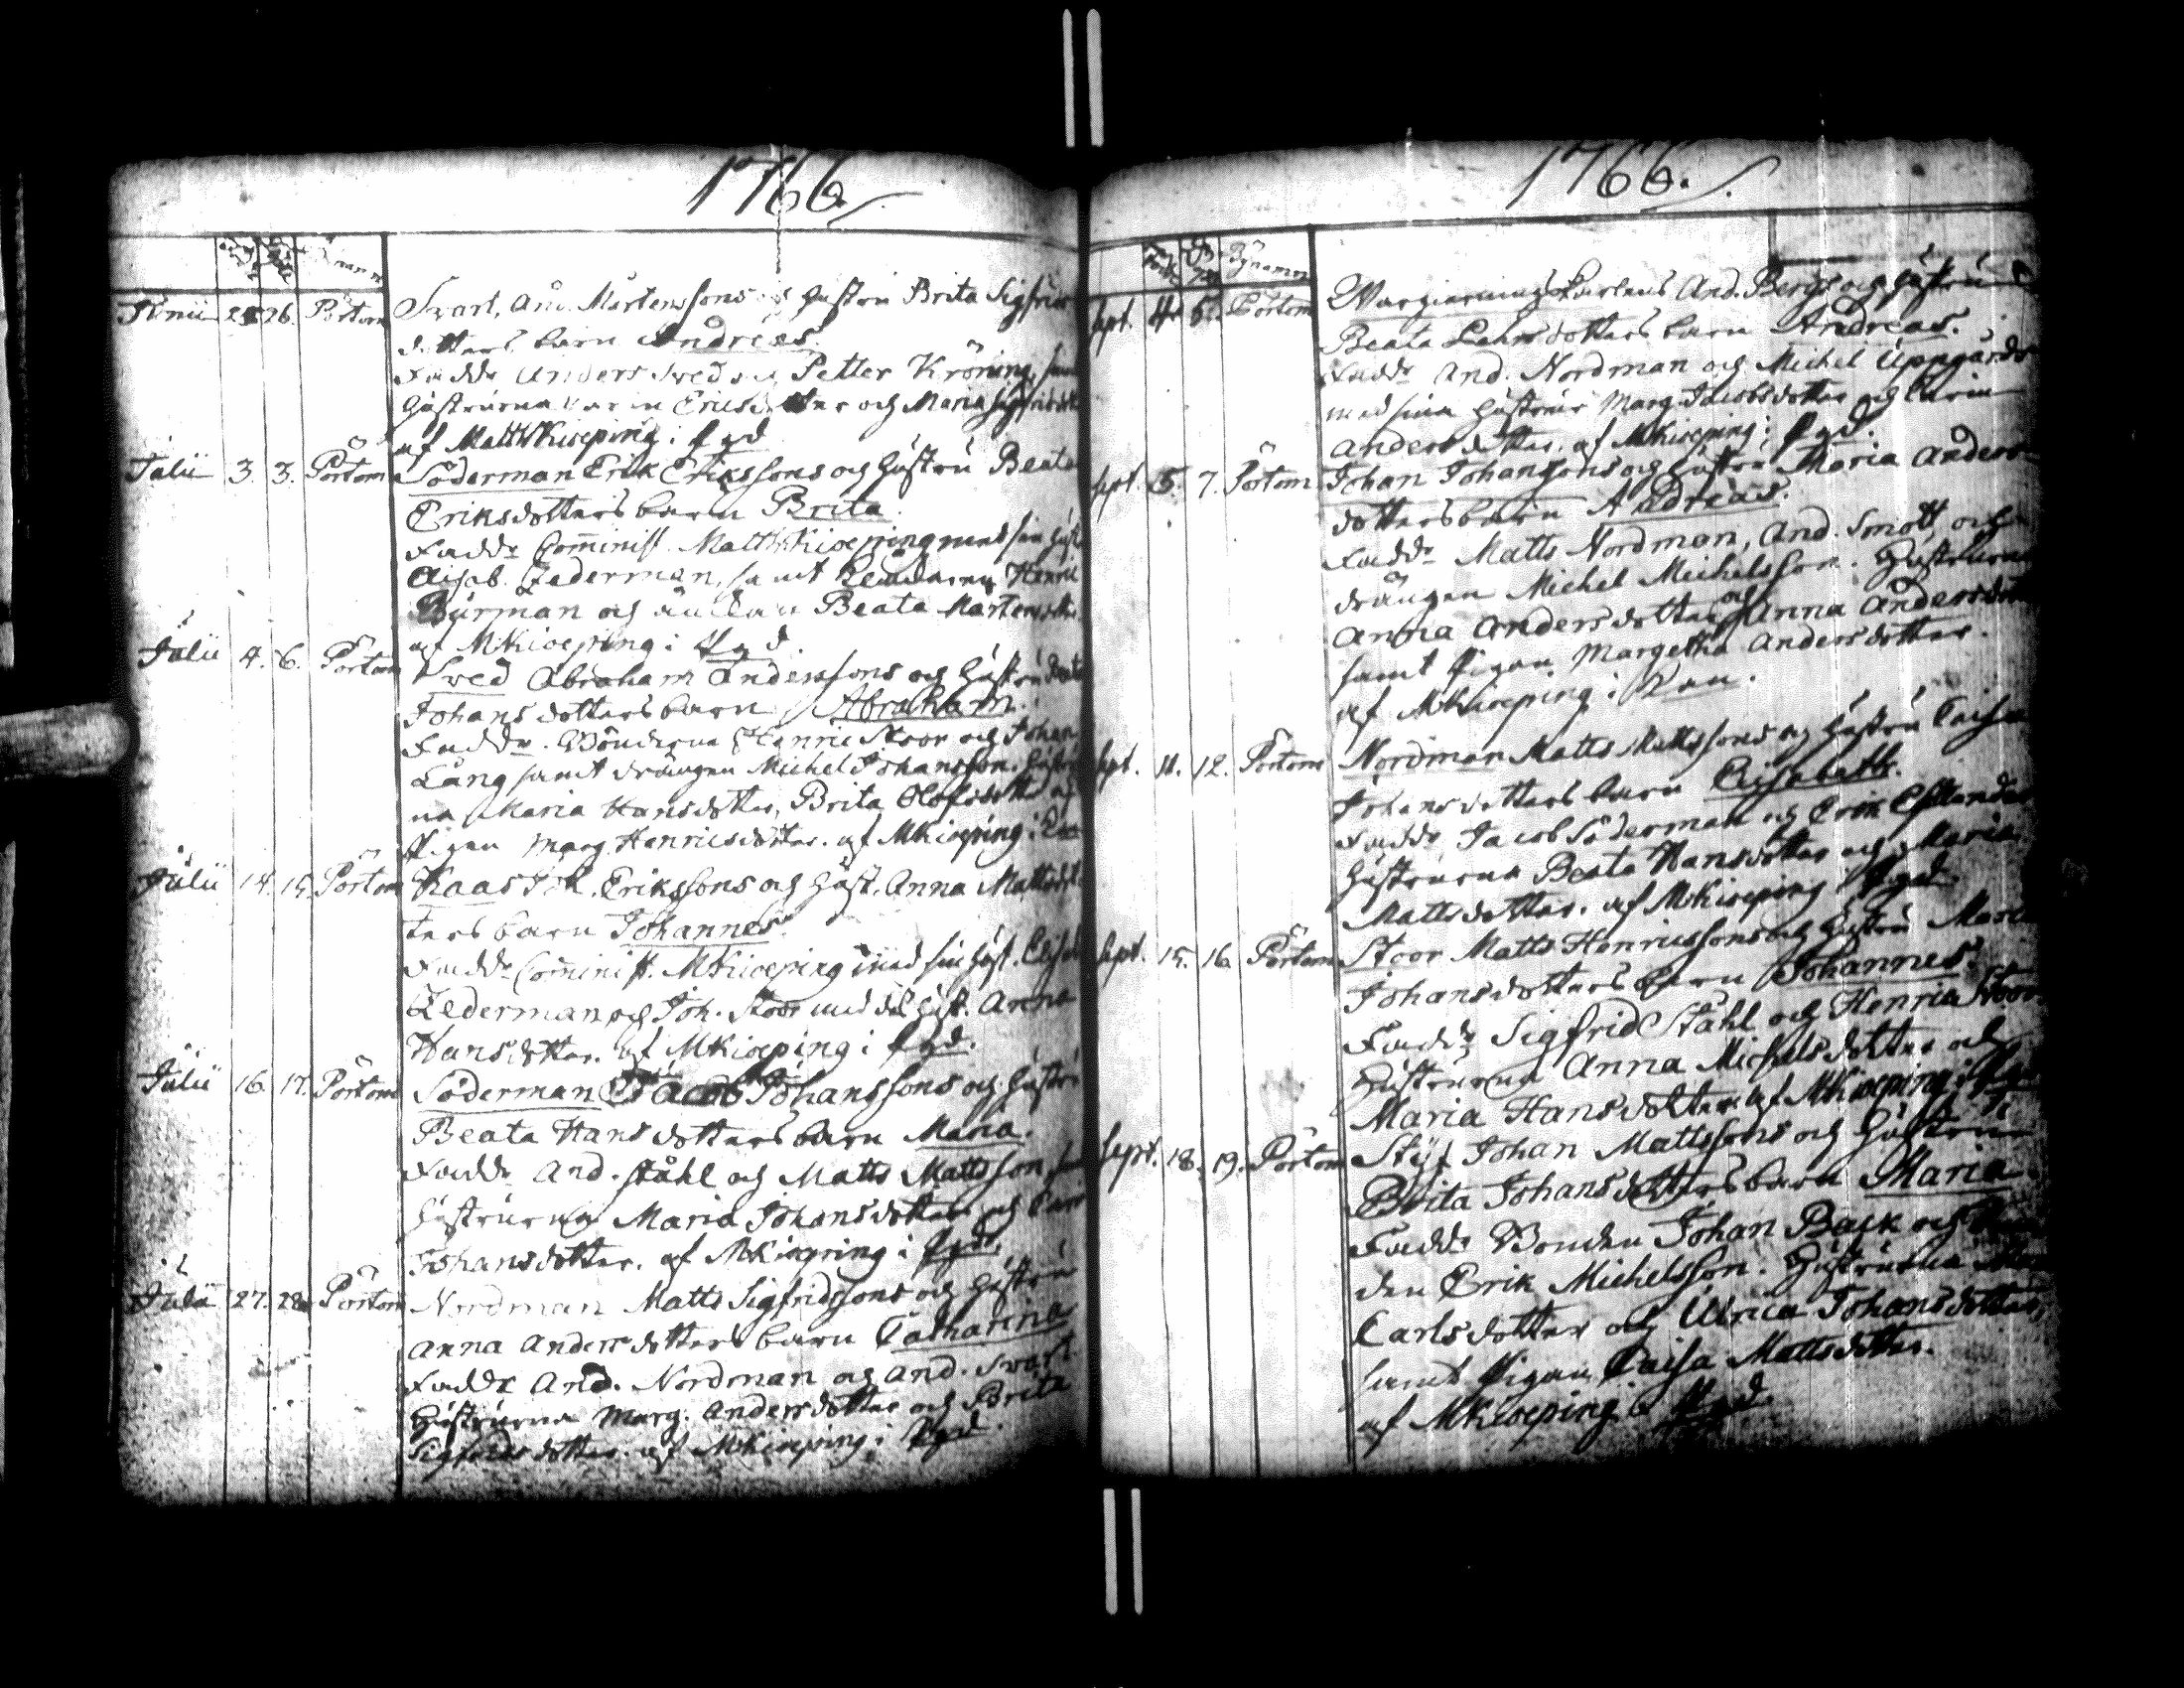 1766.
Junii 25 26. Pörtom Svart, And. Mårtenssons och hustru Brita Sigfrids
dotters barn Andreas.
Fadd: Anders Sved och Petter Kröning, samt
hustrurna Karin Ericsdotter och Maria Sigfridsdotter
af Matth Kiöping i
Julii 3. 3. Pörtom Söderman Erik Erikssons och hustru Beata
Eriksdotters barn Brita.
Fadd: Comminist. Matth. Kioeping med sin hust.
Elisab. Zederman, samt Henric
Burman och Beata Mårtensdotter
af MKioeping i
Julii 4. 6. Pörtom Sved Abraham Anderssons och hustru Beata
Johansdotters barn Abraham.
Fadd: Bönderna Henric Stoor och Johan
Lång samt drängen Michel Johansson. Hustrur
na Maria Hansdotter, Brita Olofsdotter och
Pigan Marg. Henricsdotter. af MKioeping i
Julii 14. 15. Pörtom Kaas Joh. Erikssons och hust. Anna Mattsdot
ters barn Johannes.
Fadd: Comminist. MKioeping med sin hust. Elisab
Zederman och Joh. Stoor med des hust. Anna
Hansdotter. af MKioeping i
Julii 16. 17. Pörtom Söderman Jacob Johanssons och hustru
Beata Hansdotters barn Maria.
Fadd: And. Ståhl och Matts Mattsson,
hustrurna Maria Johansdotter och
Johansdotter. af MKioeping i
Julii 27. 28. Pörtom Nordman Matts Sigfridssons och hustru
Anna Andersdotters barn Catharina
Fadd: And. Nordman och And. Svart
Hustrurna Marg. Andersdotter och Brita
Sigfridsdotter. af MKioeping i
1766.
Bynamn
Sept. 4. 5. Pörtom And. Bergs och hustru
Beata Lahrsdotters barn Andreas.
Fadd: And. Nordman och Michel Uppgårds
med sina hustrur Marg. Jacobsdotter och Carin
Andersdotter. af MKioeping i
Sept. 5. 7. Pörtom Johan Johanssons och hustru Maria Anders
dotters barn Andreas.
Fadd: Matts Nordman, And. Smått, och
drängen Michel Michelsson. Hustrurna
Anna Andersdotter och Anna Andersdotter
samt Pigan Margetha Andersdotter.
af MKioeping i
Sept. 11. 12. Pörtom Nordman Matts Mattssons och hustru Caisa
Johansdotters barn Elisabeth.
Fadd: Jacob Söderman och Erik
Hustrurna Beata Hansdotter och Maria
Mattsdotter. af MKioeping i
Sept. 15. 16. Pörtom Stoor Matts Henricssons och hustru Maria
Johansdotters barn Johannes.
Fadd: Sigfrid Ståhl och Henric Stoor
Hustrurna Anna Michelsdotter och
Maria Hansdotter. af MKioeping i
Sept. 18. 19. Pörtom Styf Johan Mattssons och hustru
Brita Johansdotters barn Maria
Fadd: Bonden Johan Back och
den Erik Michelsson. Hustrurna
Carlsdotter och Ulrica Johansdotter,
samt Pigan Caisa Mattsdotter.
af MKioeping i